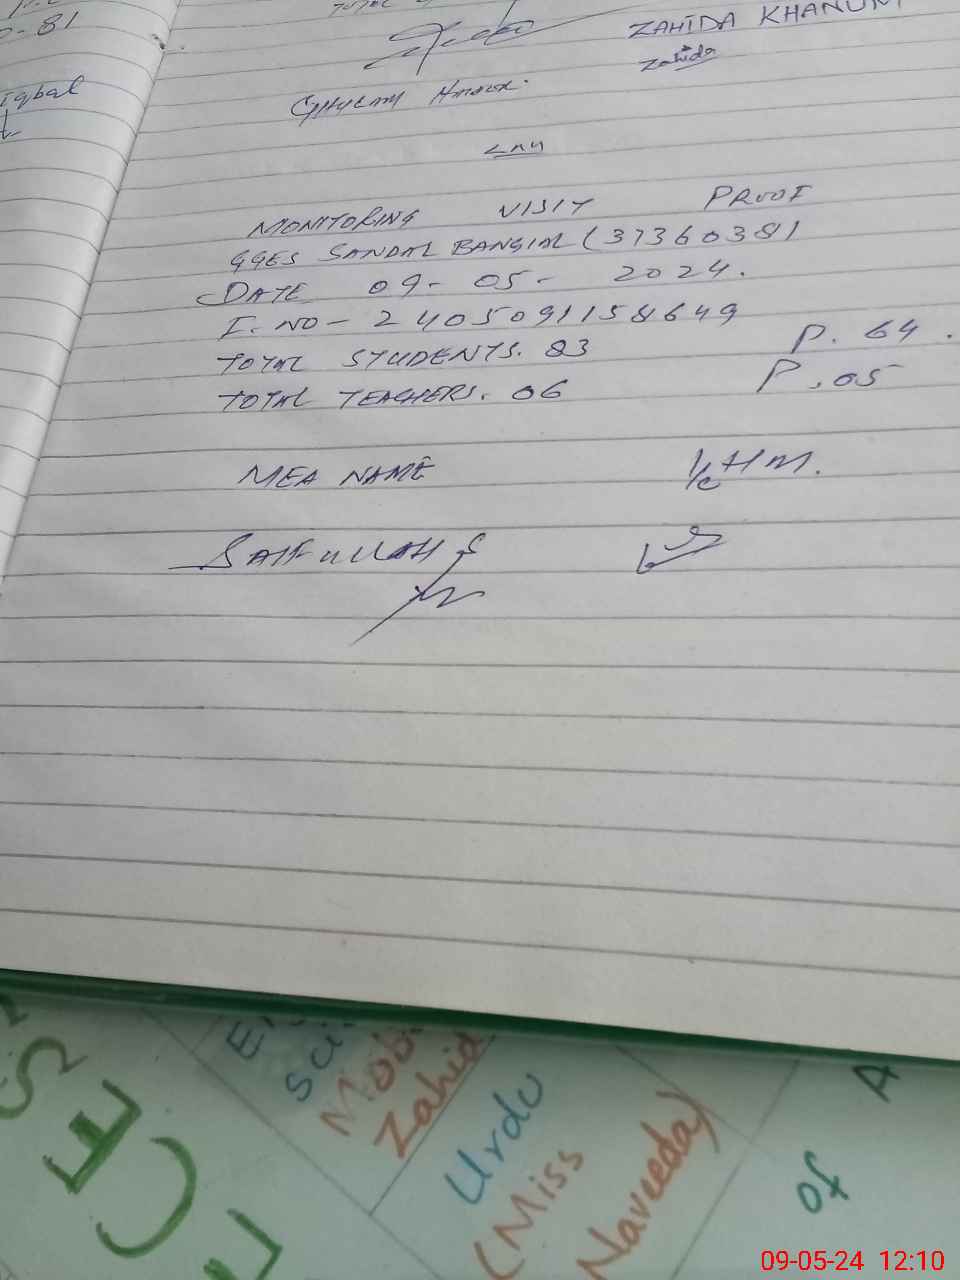 81
iqbal
ZAHIDA KHANUM
Zahida
MONITORING VISIT PROOF
GGES SANDAL BANGIAL (37360381
DATE 09-05-2024.
I. NO - 2405091158649
TOTAL STUDENTS. 83 P. 64.
TOTAL TEACHERS. 06 P. 05
MEA NAME I/C HM.
SAIFULLAH
Sci
Zahid
Urdu
(Miss
Naveeda)
of
A
09-05-24 12:10